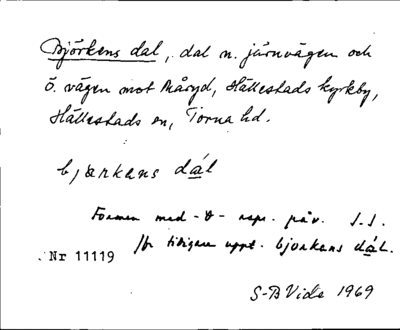 Björkens dal, dal n. järnvägen och
ö. vägen mot Måryd, Hällestads kyrkby,
Hällestads sn, Torna hd.
bjərkens dál
Formen med -ə- uppr. påv. S.S.
tidigare uppt. bjorkens dál.
Nr 11119
S-B Vide 1969